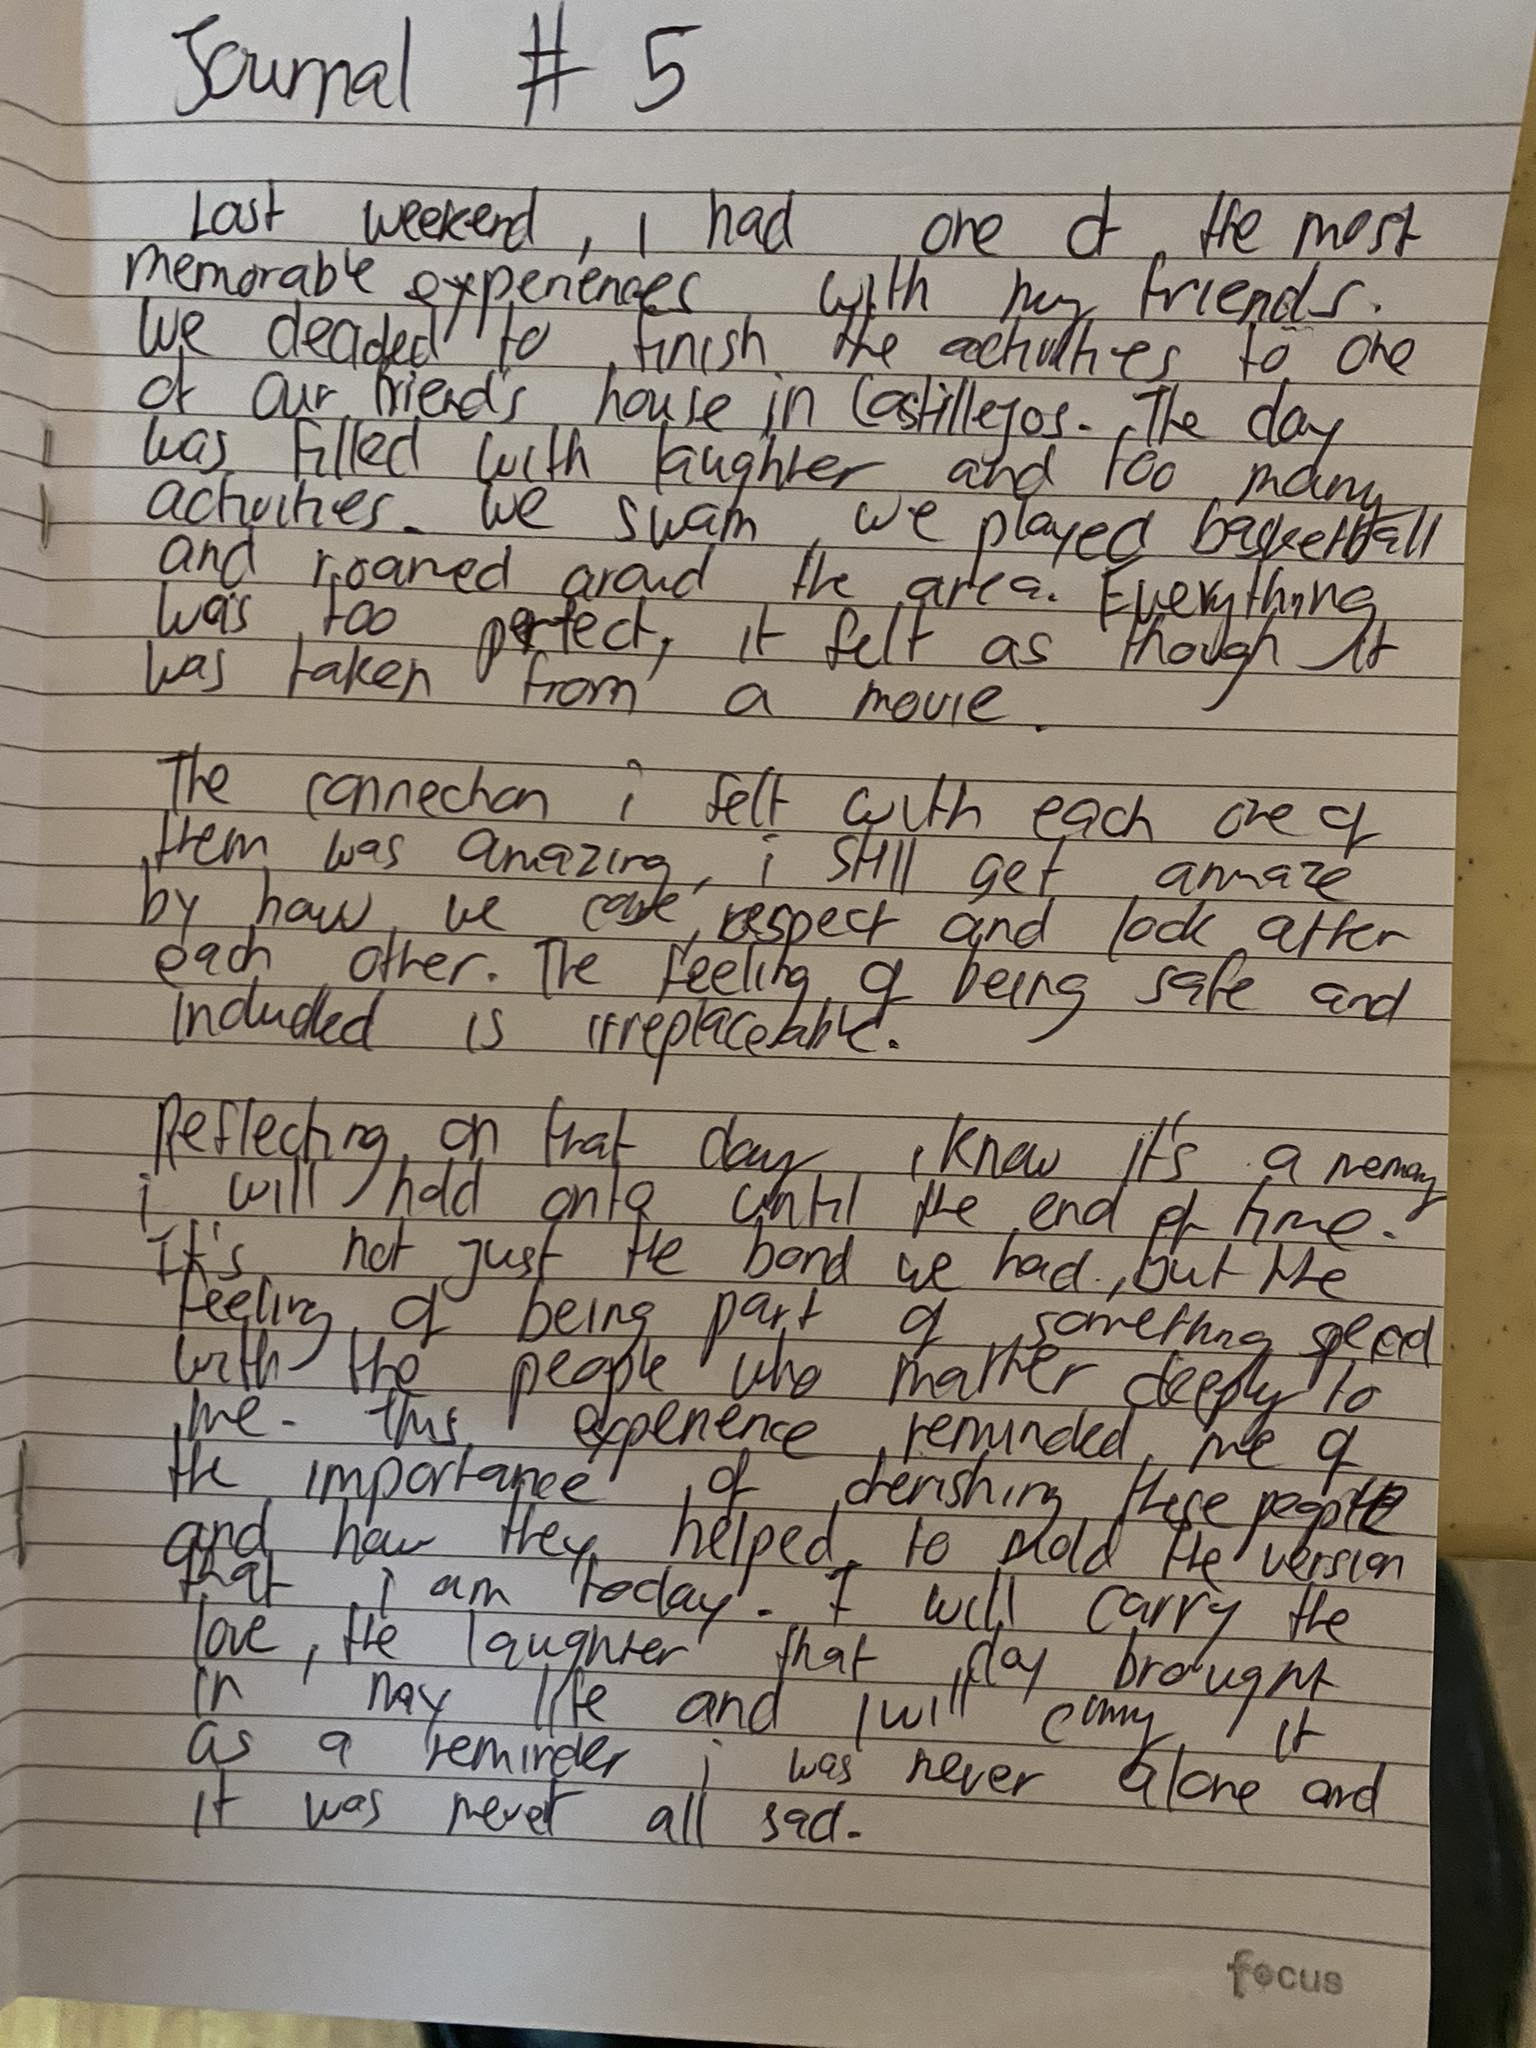 Journal # 5
Last weekend, i had one of the most
memorable experiences with my friends.
We decided to finish the activities to one
of our friend's house in Castillejos. The day
was filled with laughter and too many
activities. We swam, we played basketball
and roamed around the area. Everything
was too perfect, it felt as though it
was taken from a movie.
The connection i felt with each one of
them was amazing, i still get amaze
by how we care, respect and look after
each other. The feeling of being safe and
included is irreplaceable.
Reflecting on that day, i know it's a memory
i will hold onto until the end of time.
It's not just the bond we had, but the
feeling of being part of something special
with the people who matter deeply to
me. This experience reminded me of
the importance of cherishing these people
and how they helped to mold the version
that i am today. I will carry the
love, the laughter that day brought
in my life and i will carry it
as a reminder i was never alone and
it was never all sad.
focus